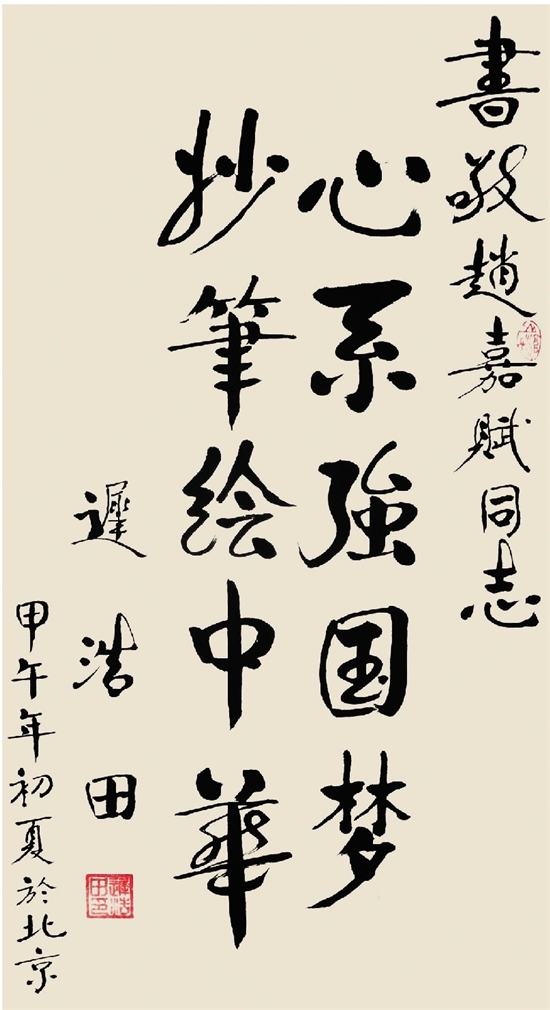 書敬趙嘉賦同志
心系強国梦
妙筆绘中華
遲浩田
甲午年初夏於北京
遲浩田印